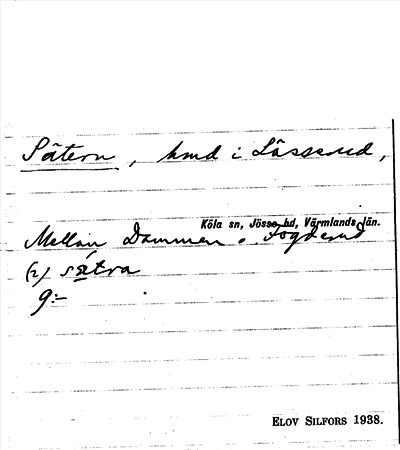 Sätern, hmd i Lässerud,
Köla sn, Jösse hd, Värmlands län.
Mellan Dammen o Fogderud
(2) sätra
9:-
ELOV SILFORS 1938.